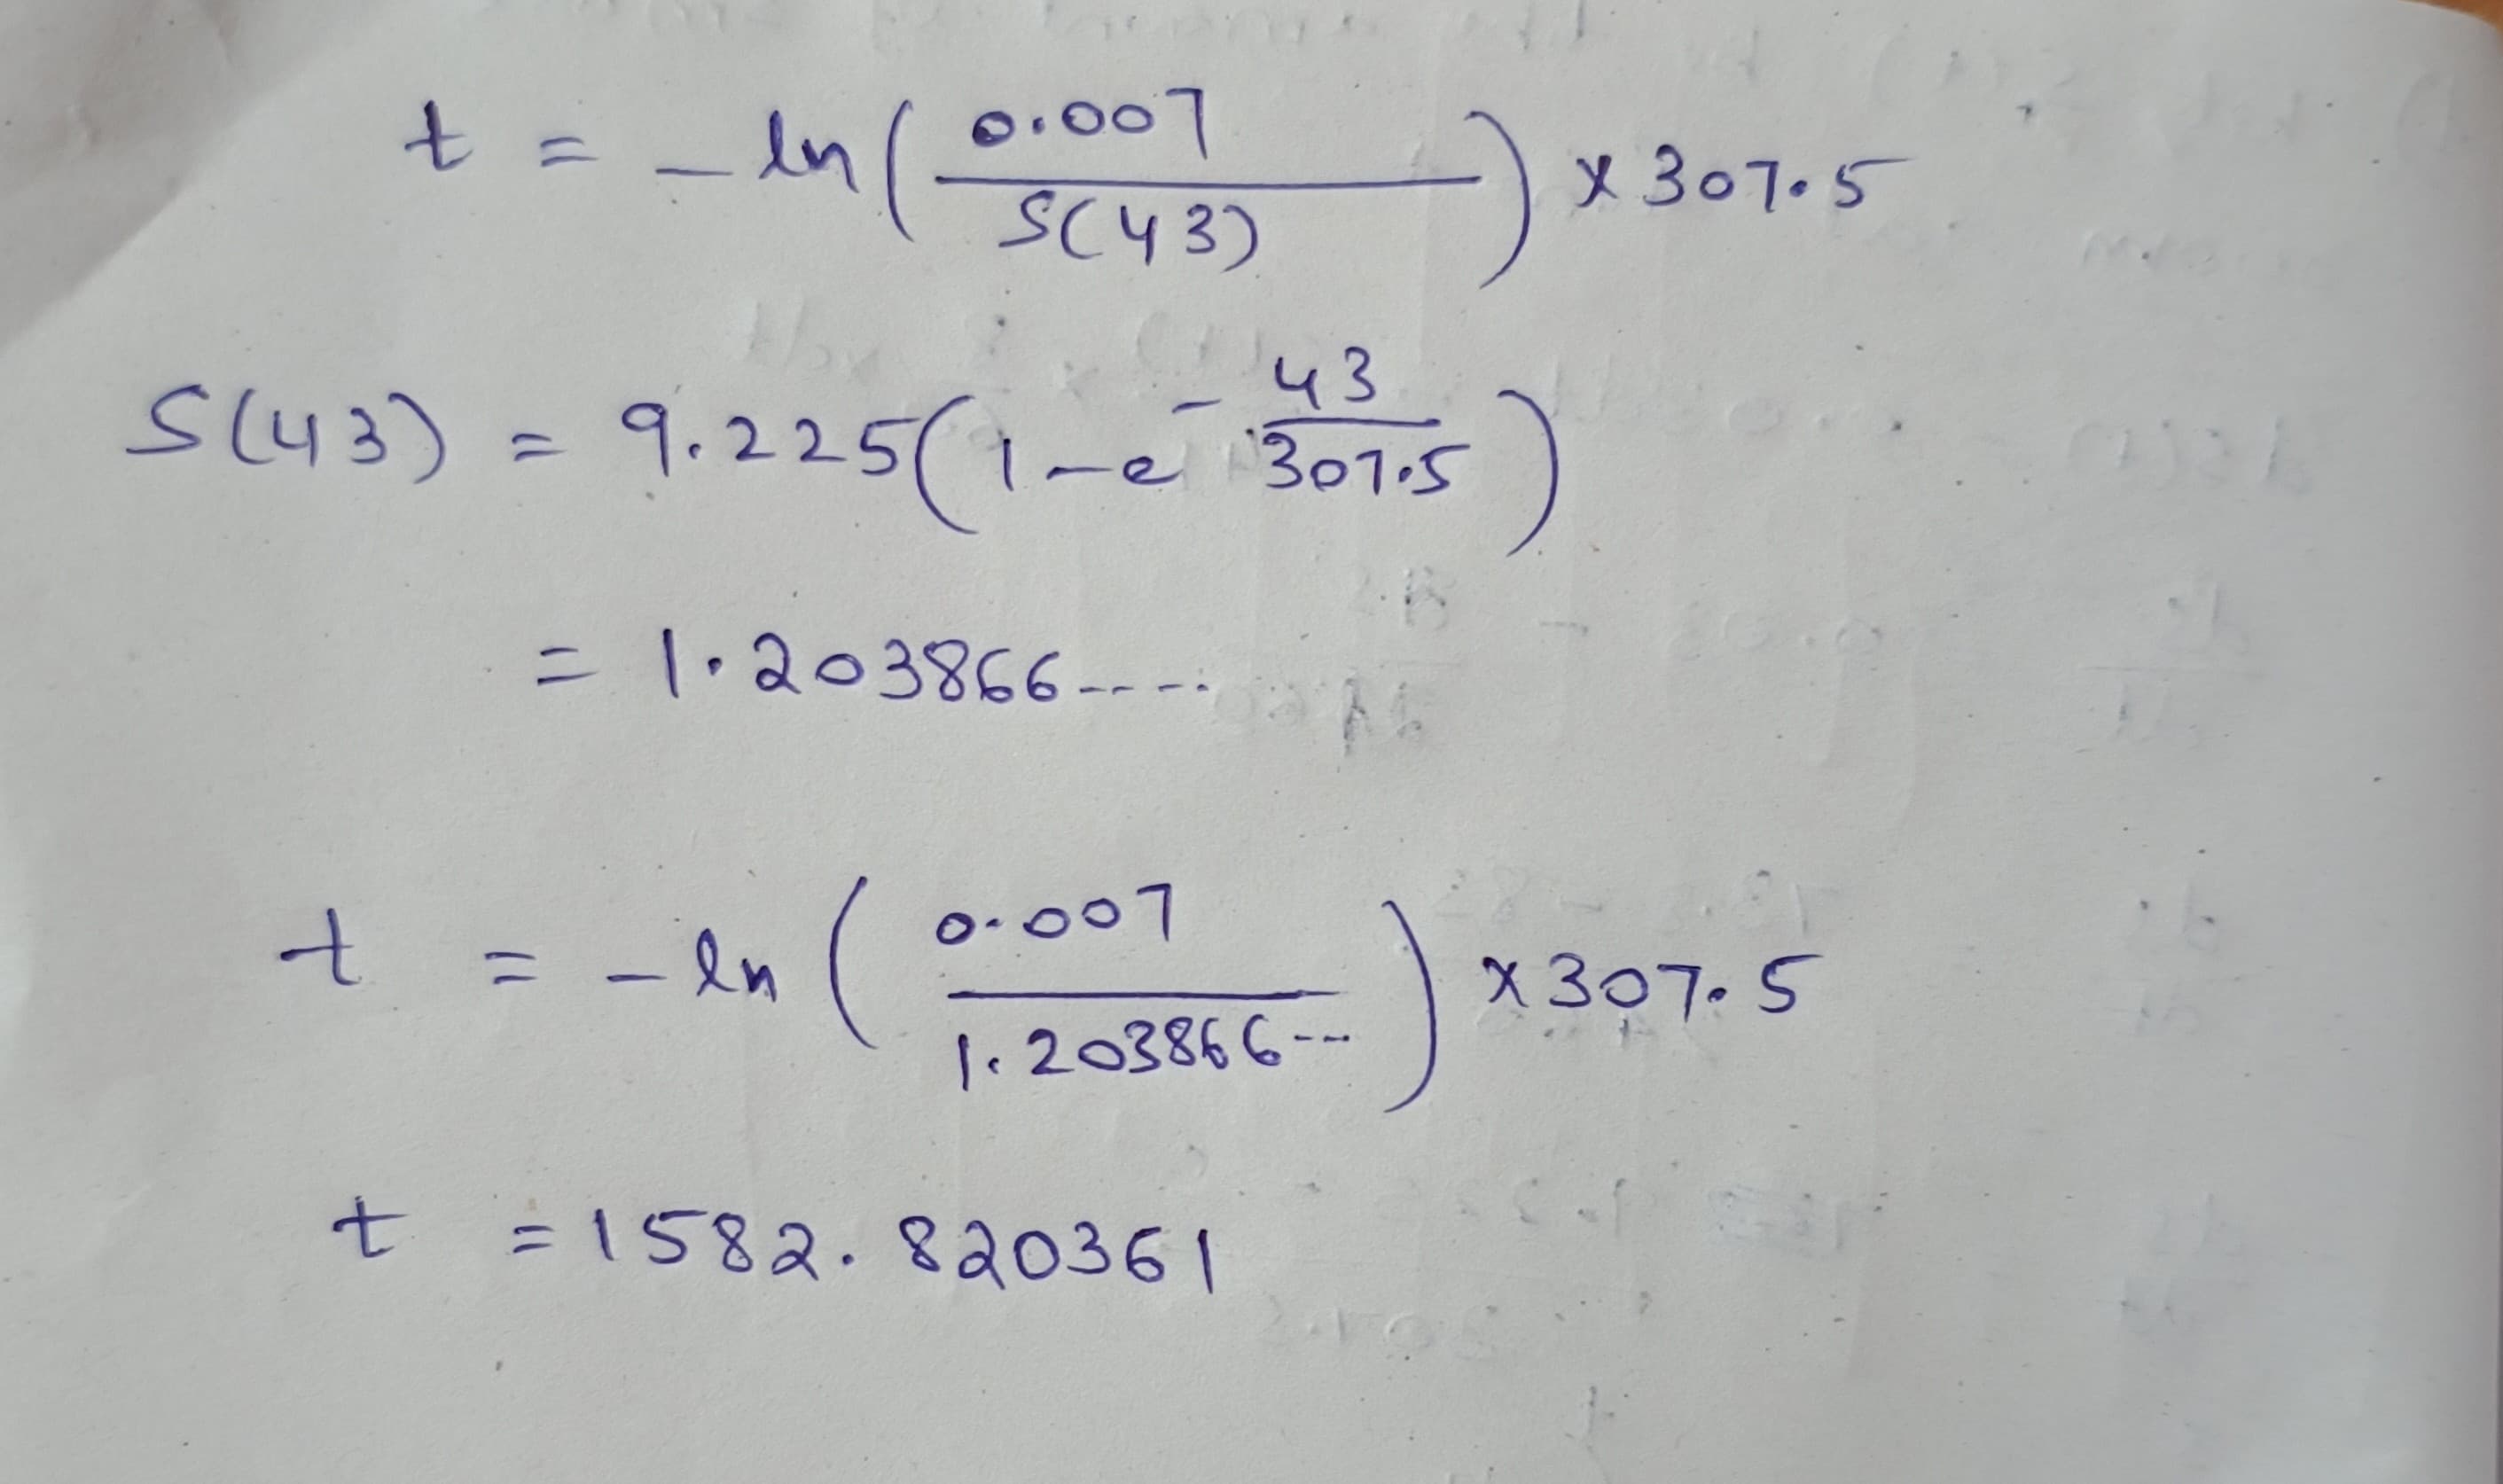 t = - ln ( 0.007 / S(43) ) x 307.5
S(43) = 9.225 ( 1 - e ^ - 43 / 307.5 )
= 1.203866-----
t = - ln ( 0.007 / 1.203866--- ) x 307.5
t = 1582.820361